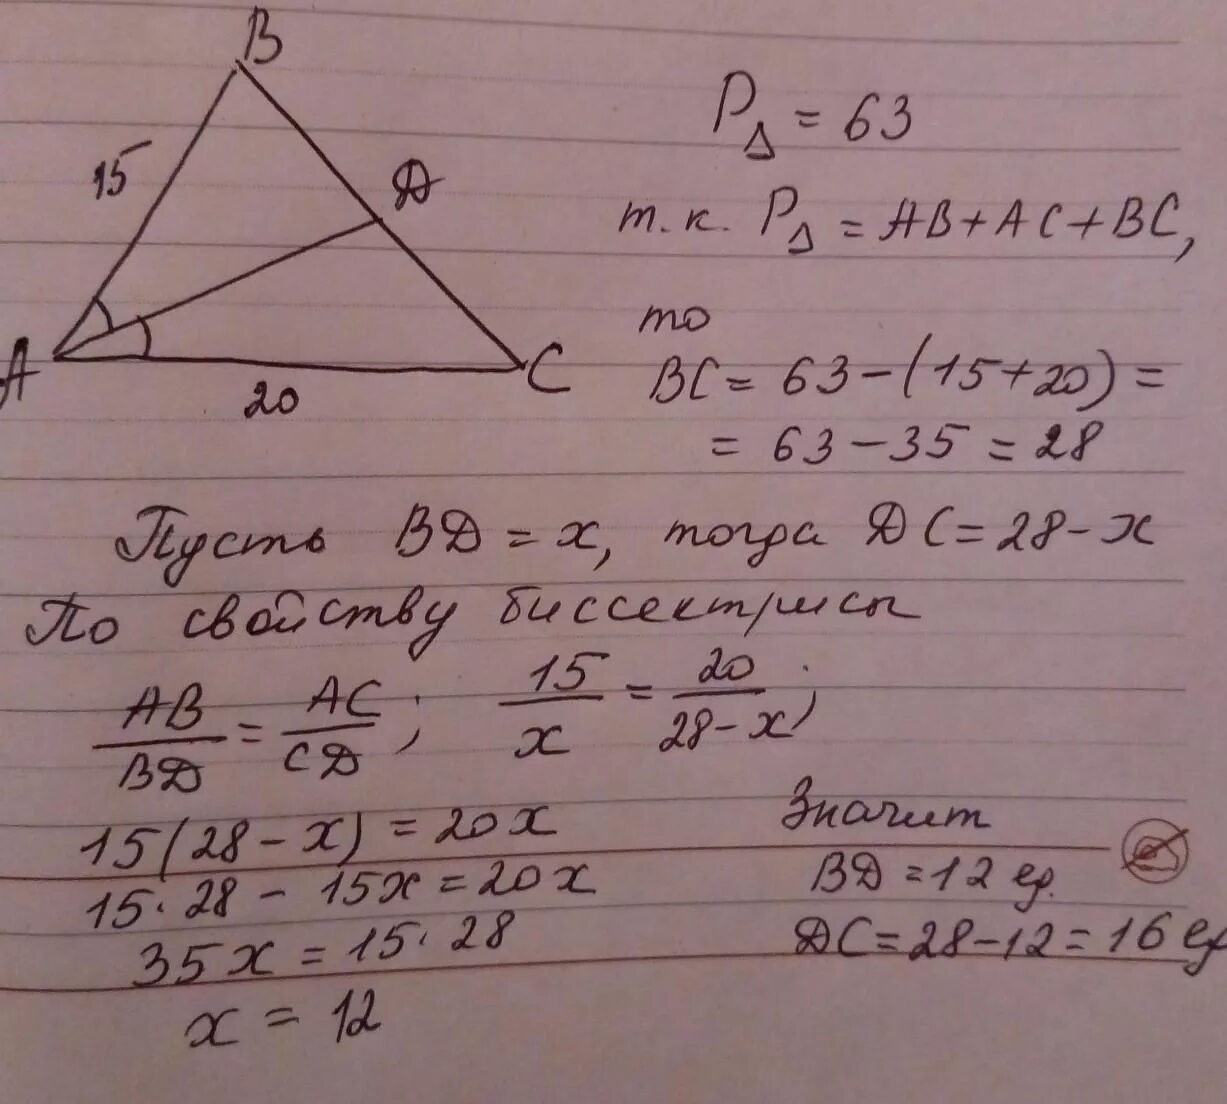 B
15
D
A
20
C
P△ = 63
т.к. P△ = AB+AC+BC,
то
BC = 63-(15+20) =
= 63-35 = 28
Пусть BD = x, тогда DC = 28-x
По свойству биссектрисы
AB/BD = AC/CD; 15/x = 20/(28-x);
15(28-x) = 20x
15·28 - 15x = 20x
35x = 15·28
x = 12
Значит
BD = 12 ед.
DC = 28-12 = 16 ед